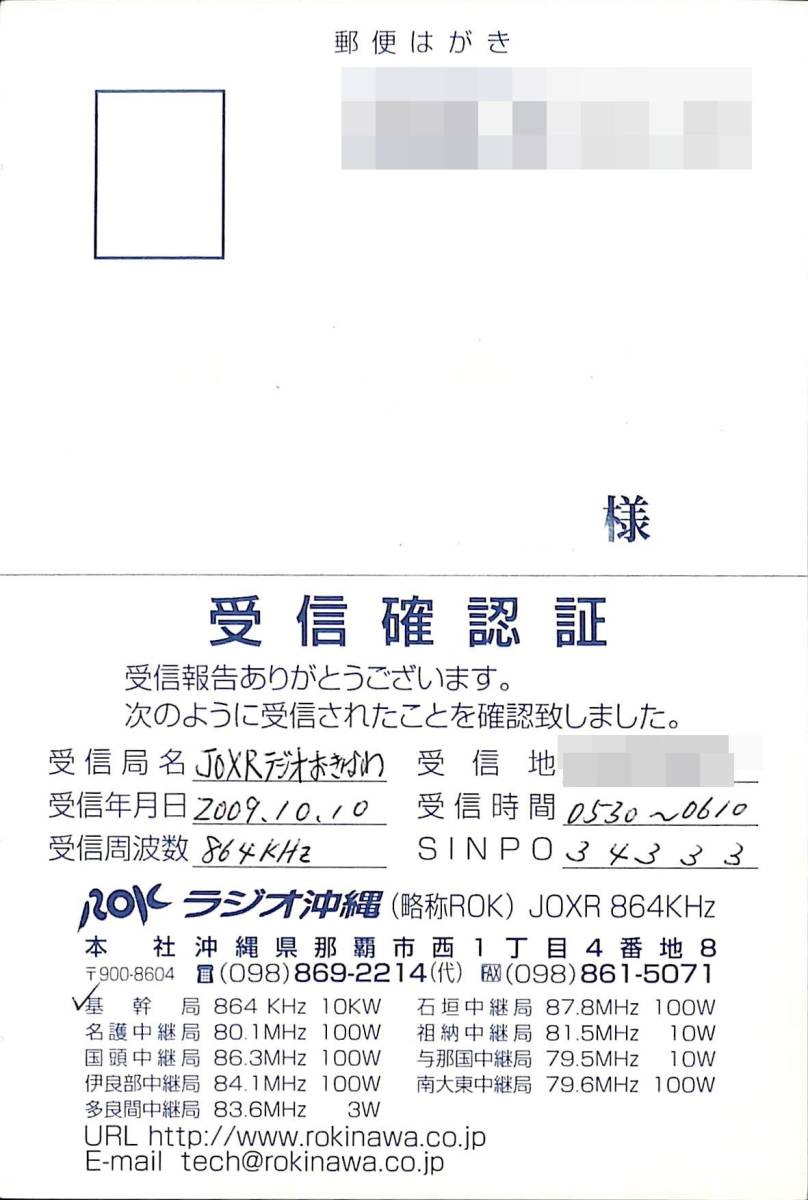 郵便はがき
様
受信確認証
受信報告ありがとうございます。
次のように受信されたことを確認致しました。
受信局名 JOXRラジオおきなわ 受信地
受信年月日 2009.10.10 受信時間 0530～0610
受信周波数 864KHz SINPO 34333
ROK ラジオ沖縄(略称ROK) JOXR 864KHz
本社 沖縄県那覇市西1丁目4番地8
〒900-8604 ☎(098)869-2214(代) FAX(098)861-5071
✓基幹局 864 KHz 10KW 石垣中継局 87.8MHz 100W
名護中継局 80.1MHz 100W 祖納中継局 81.5MHz 10W
国頭中継局 86.3MHz 100W 与那国中継局 79.5MHz 10W
伊良部中継局 84.1MHz 100W 南大東中継局 79.6MHz 100W
多良間中継局 83.6MHz 3W
URL http://www.rokinawa.co.jp
E-mail tech@rokinawa.co.jp